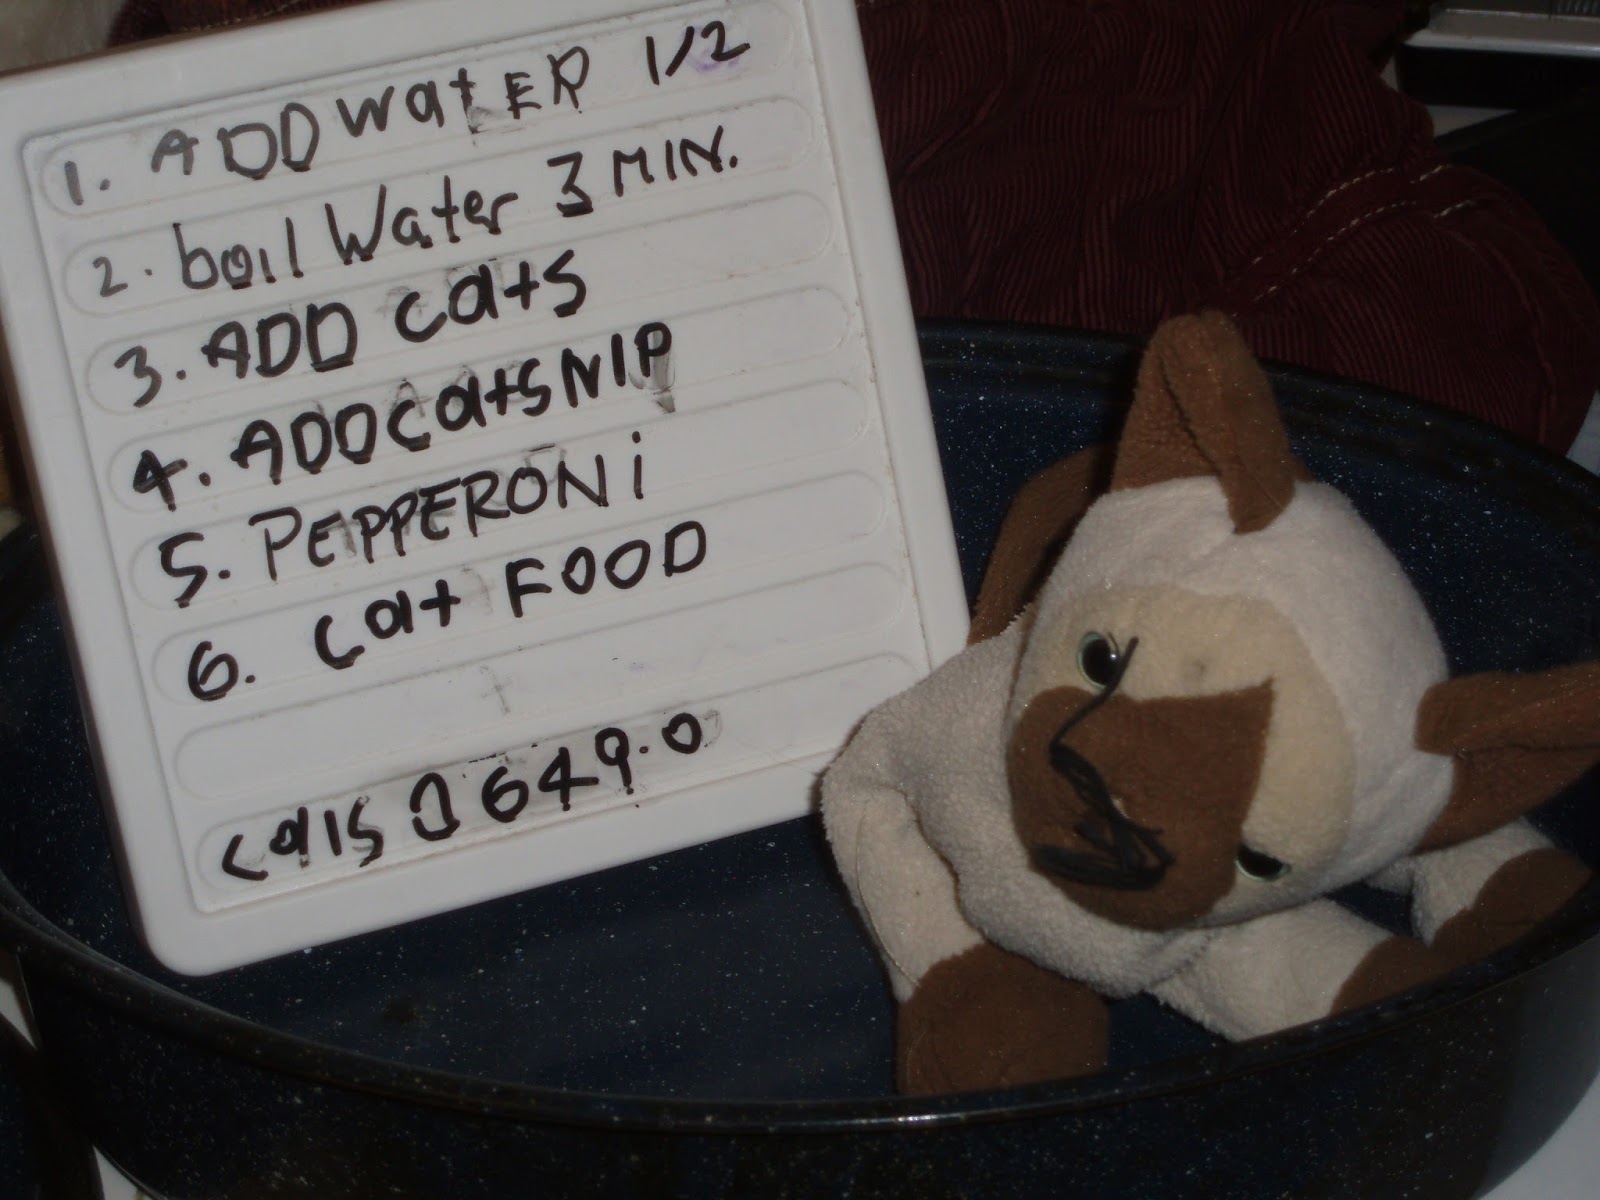 1. ADD WatER 1/2
2. boil Water 3 MIN.
3. ADD cats
4. ADD catSNIP
5. PEPPERONi
6. cat FOOD
649.0